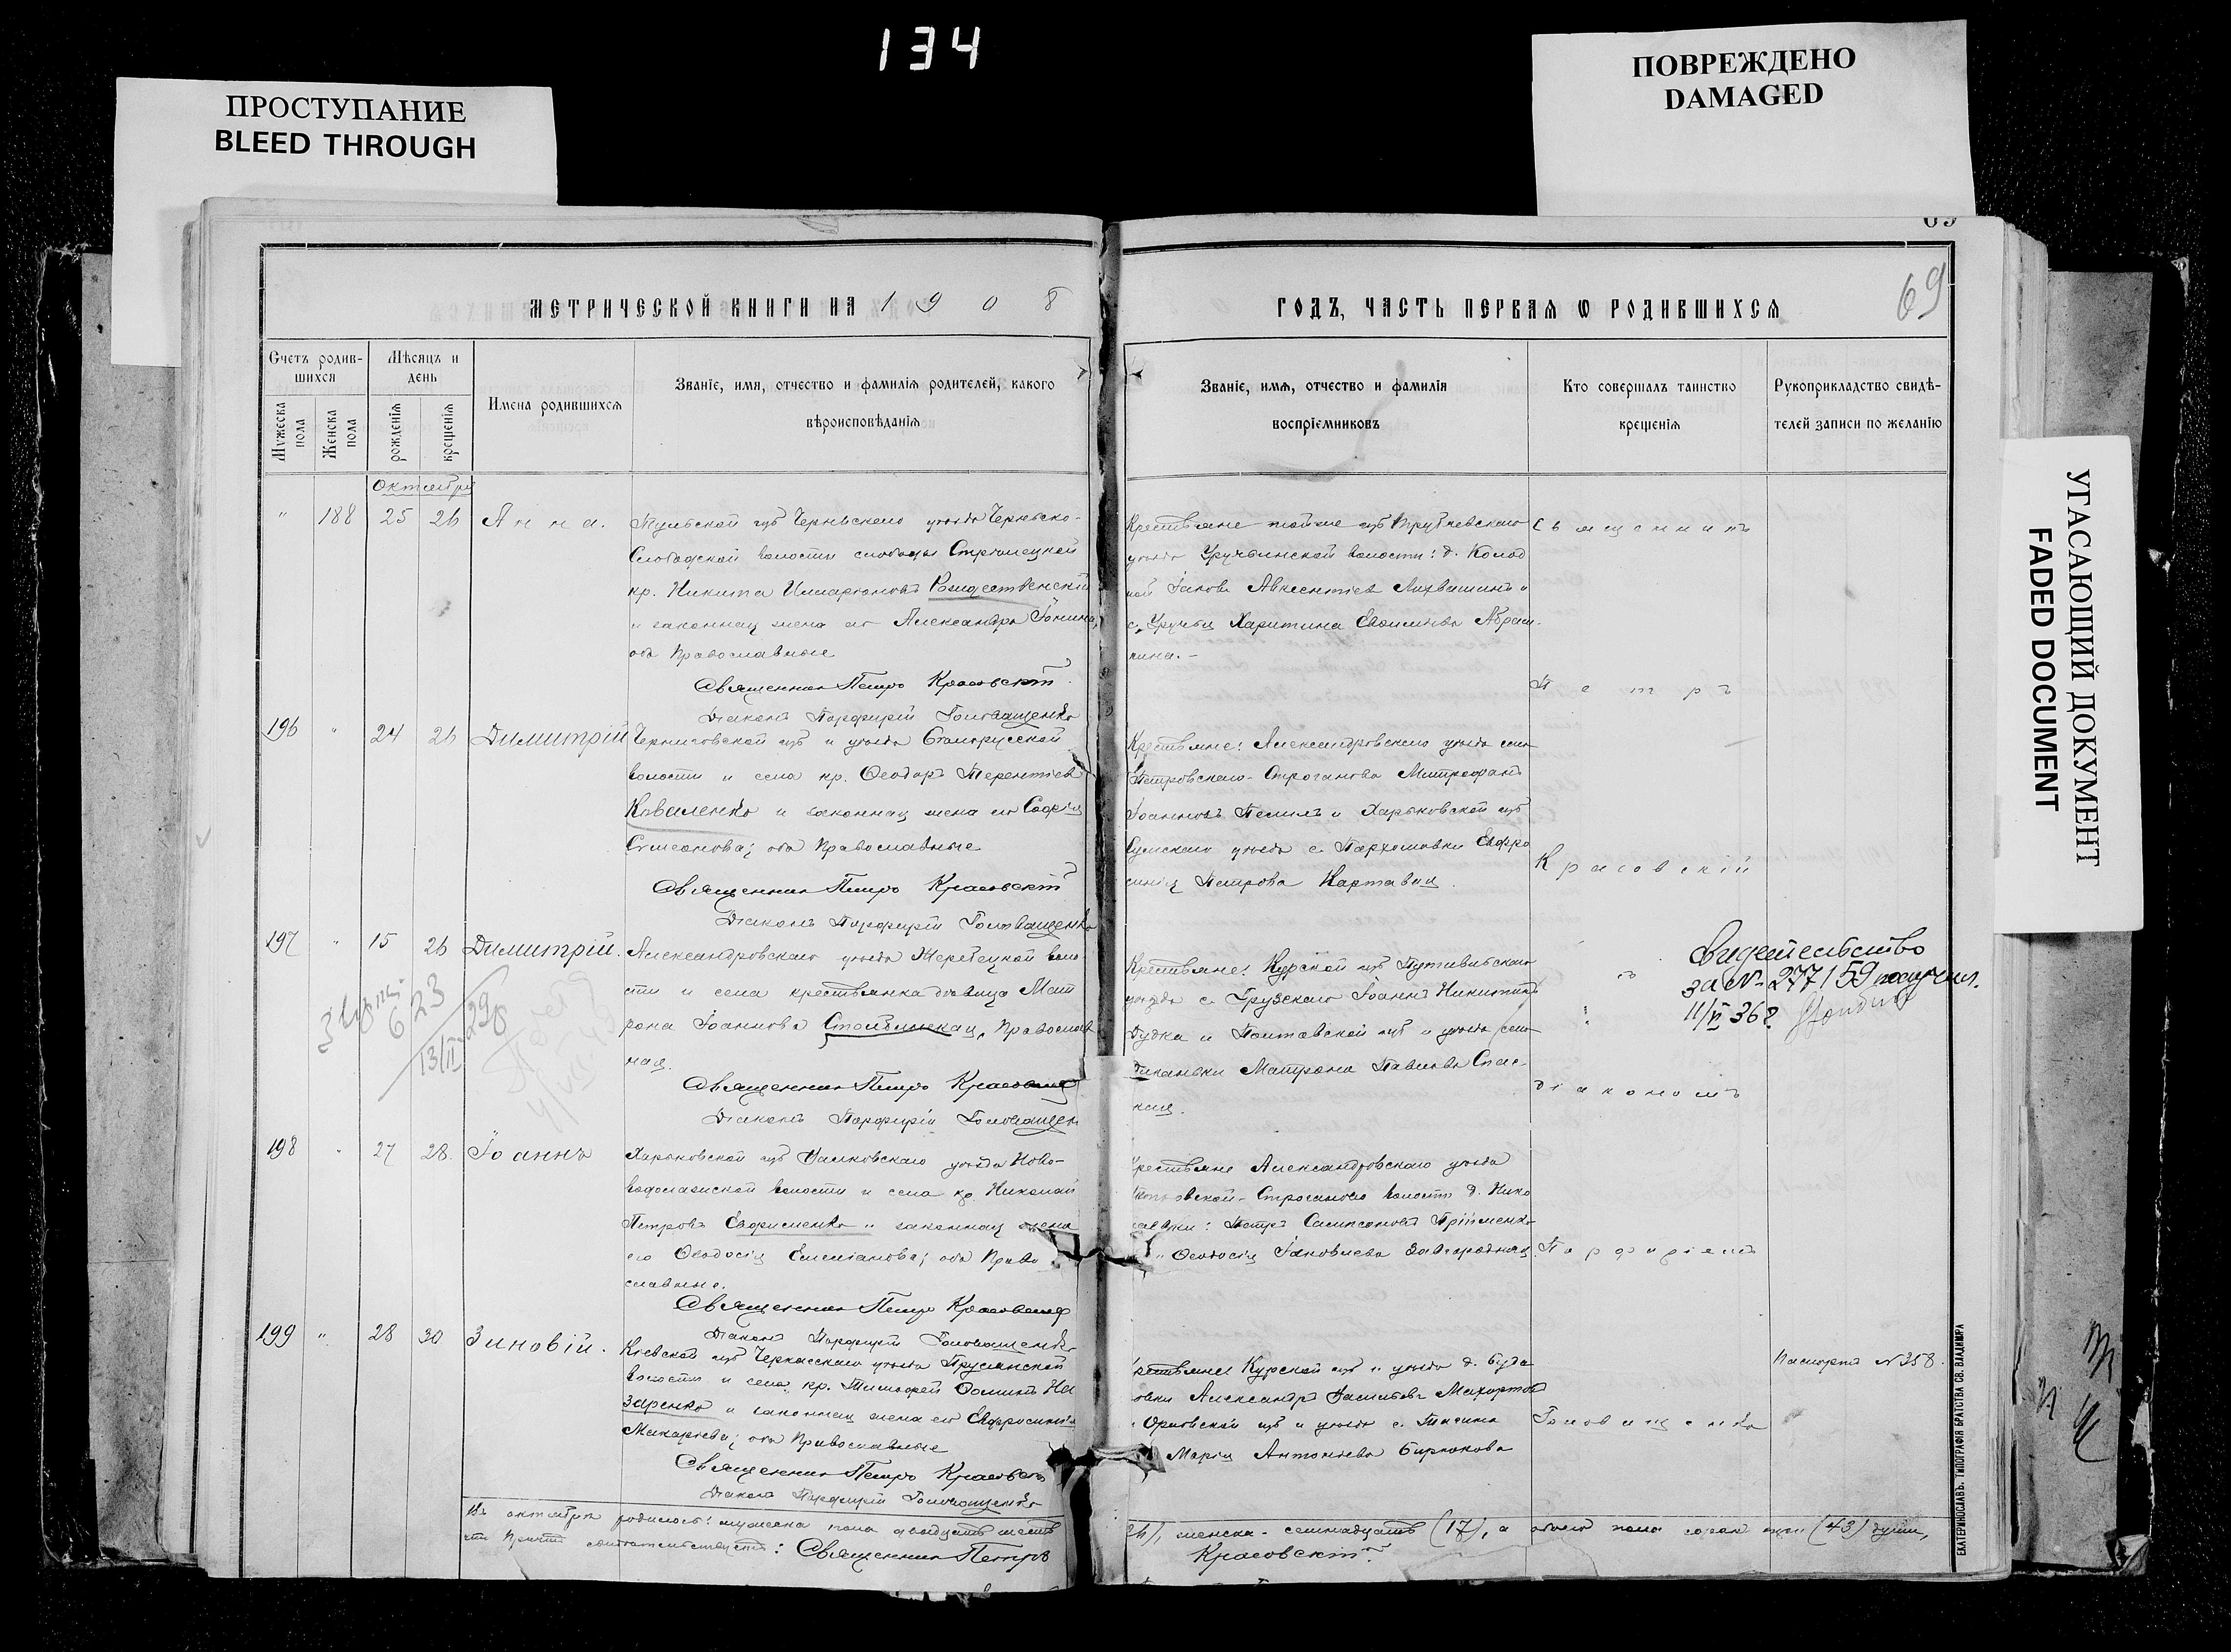 134
ПРОСТУПАНИЕ
BLEED THROUGH
ПОВРЕЖДЕНО
DAMAGED
УГАСАЮЩИЙ ДОКУМЕНТ
FADED DOCUMENT
69
МЕТРИЧЕСКОЙ КНИГИ НА 1908
ГОДЪ, ЧАСТЬ ПЕРВАЯ Ѡ РОДИВШИХСЯ
Счетъ родив-
шихся
Мужеска
пола
Женска
пола
Мѣсяцъ и
день
рожденія
крещенія
Имена родившихся
Званіе, имя, отчество и фамилія родителей, какого
вѣроисповѣданія
Званіе, имя, отчество и фамилія
воспріемниковъ
Кто совершалъ таинство
крещенія
Рукоприкладство свидѣ-
телей записи по желанію
Октября
" 188 25 26 Анна.
Тульской губ Черньскаго уѣзда Черньско-
Слободской волости слободы Стрѣлецкой
кр. Никита Илларіоновъ Рождественскій
и законная жена его Александра Іонина,
оба Православные
Священник Петръ Красовскій
Діаконъ Порфирій Головащенко
Крестьяне той же губ
уѣзда волости: д. Колод
Іаковъ Авксентіев и
с. Харитина Евѳиміева Абрам-
кина.-
Священникъ
Петръ
Красовскій
196 " 24 26 Димитрій
Черниговской губ и уѣзда
волости и села кр. Ѳеодоръ Терентіев
Коваленко и законная жена его Софія
Симеонова; оба Православные
Священник Петръ Красовскій
Діаконъ Порфирій Головащенко
Крестьяне: Александровскаго уѣзда села
Петровскаго-Строганова Митрофанъ
Іоанновъ и Харьковской губ
Сумскаго уѣзда с. Пархомовки Евфро
синія Петрова Картавая.
197 " 15 26 Димитрій.
Александровскаго уѣзда Жеребецкой воло
сти и села крестьянка дѣвица Мат
рона Іоаннова Православ
ная.
Священник Петръ Красовскій
Діаконъ Порфирій Головащен
Крестьяне: Курской губ Путивльскаго
уѣзда с. Грузскаго Іоаннъ Никитинъ
Дудка и Полтавской губ и уѣзда села
Диканьки Матрона Павлова Спас-
кая.
съ
Діакономъ
Свидетельство
за № 277159 получил.
11/VI 36 г.
6 23
13/II
298
198 " 27 28. Іоаннъ
Харьковской губ Валковскаго уѣзда Ново-
водолажской волости и села кр. Николай
Петровъ Евфименко и законная жена
его Ѳеодосія Емеліанова; оба Право
славные.
Священник Петръ Красовскій
Діаконъ Порфирій Головащенко
Крестьяне Александровскаго уѣзда
Петровской-Строгановo волости д. Нико
лаевки: Петръ Сампсоновъ Пріймеnко
и Ѳеодосія Іаковлева Завгородняя.
Порфиріемъ
199 " 28 30 Зиновій.
Кіевской губ Черкасскаго уѣзда Прусянской
волости и села кр. Тимофей Ѳоминъ На
заренко и законная жена его Евфросинія
Макаріева; оба Православные
Священник Петръ Красовскій
Діаконъ Порфирій Головащенко
Крестьяне Курской губ и уѣзда д. Буда
новки Александръ Васильевъ Махортовъ
и Орловской губ и уѣзда с.
Марія Антоніева Бирюкова
Головащенко
Паспортъ №358.
Въ октябрѣ родилось: мужеска пола двадцать шесть
(26), женска - семнадцать (17), а обоего пола сорок три (43) души,
что Причтъ свидѣтельствуетъ: Священник Петръ
Красовскій
ЕКАТЕРИНОСЛАВЪ. ТИПОГРАФІЯ БРАТСТВА СВ. ВЛАДИМІРА